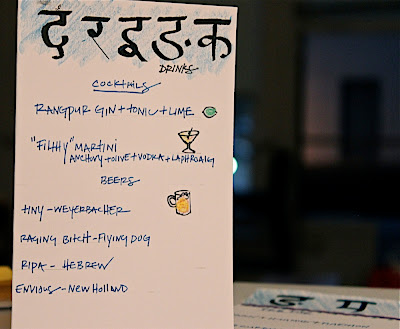 दं र इ ङ क
DRINKS
COCKTAILS
RANGPUR GIN + TONIC + LIME
"FILTHY" MARTINI
ANCHOVY + OLIVE + VODKA + LAPHROAIG
BEERS
TINY - WEYERBACHER
RAGING BITCH - FLYING DOG
RIPA - HEBREW
ENVIOUS - NEW HOLLAND